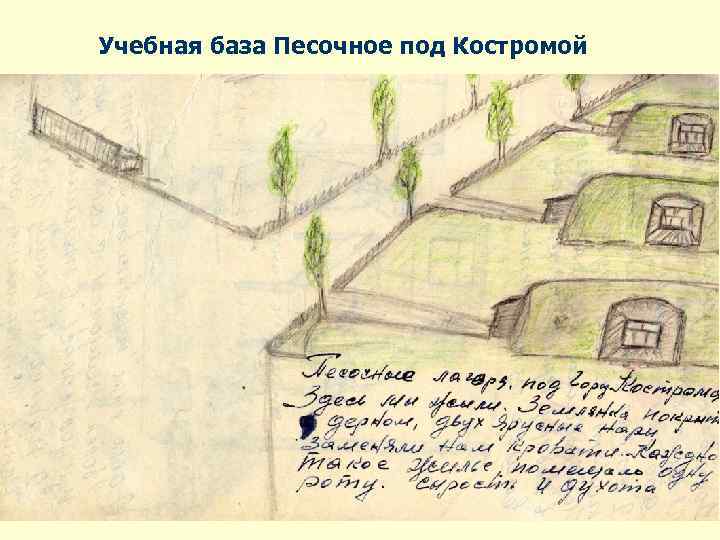 Учебная база Песочное под Костромой
Песочные лагеря, под гору Кострома
Здесь мы жили. Землянки покрыт
дерном, двух ярусные нары
заменяли нам кровати. Каждно
такое жилье, помещало одну
роту. сырость и духота